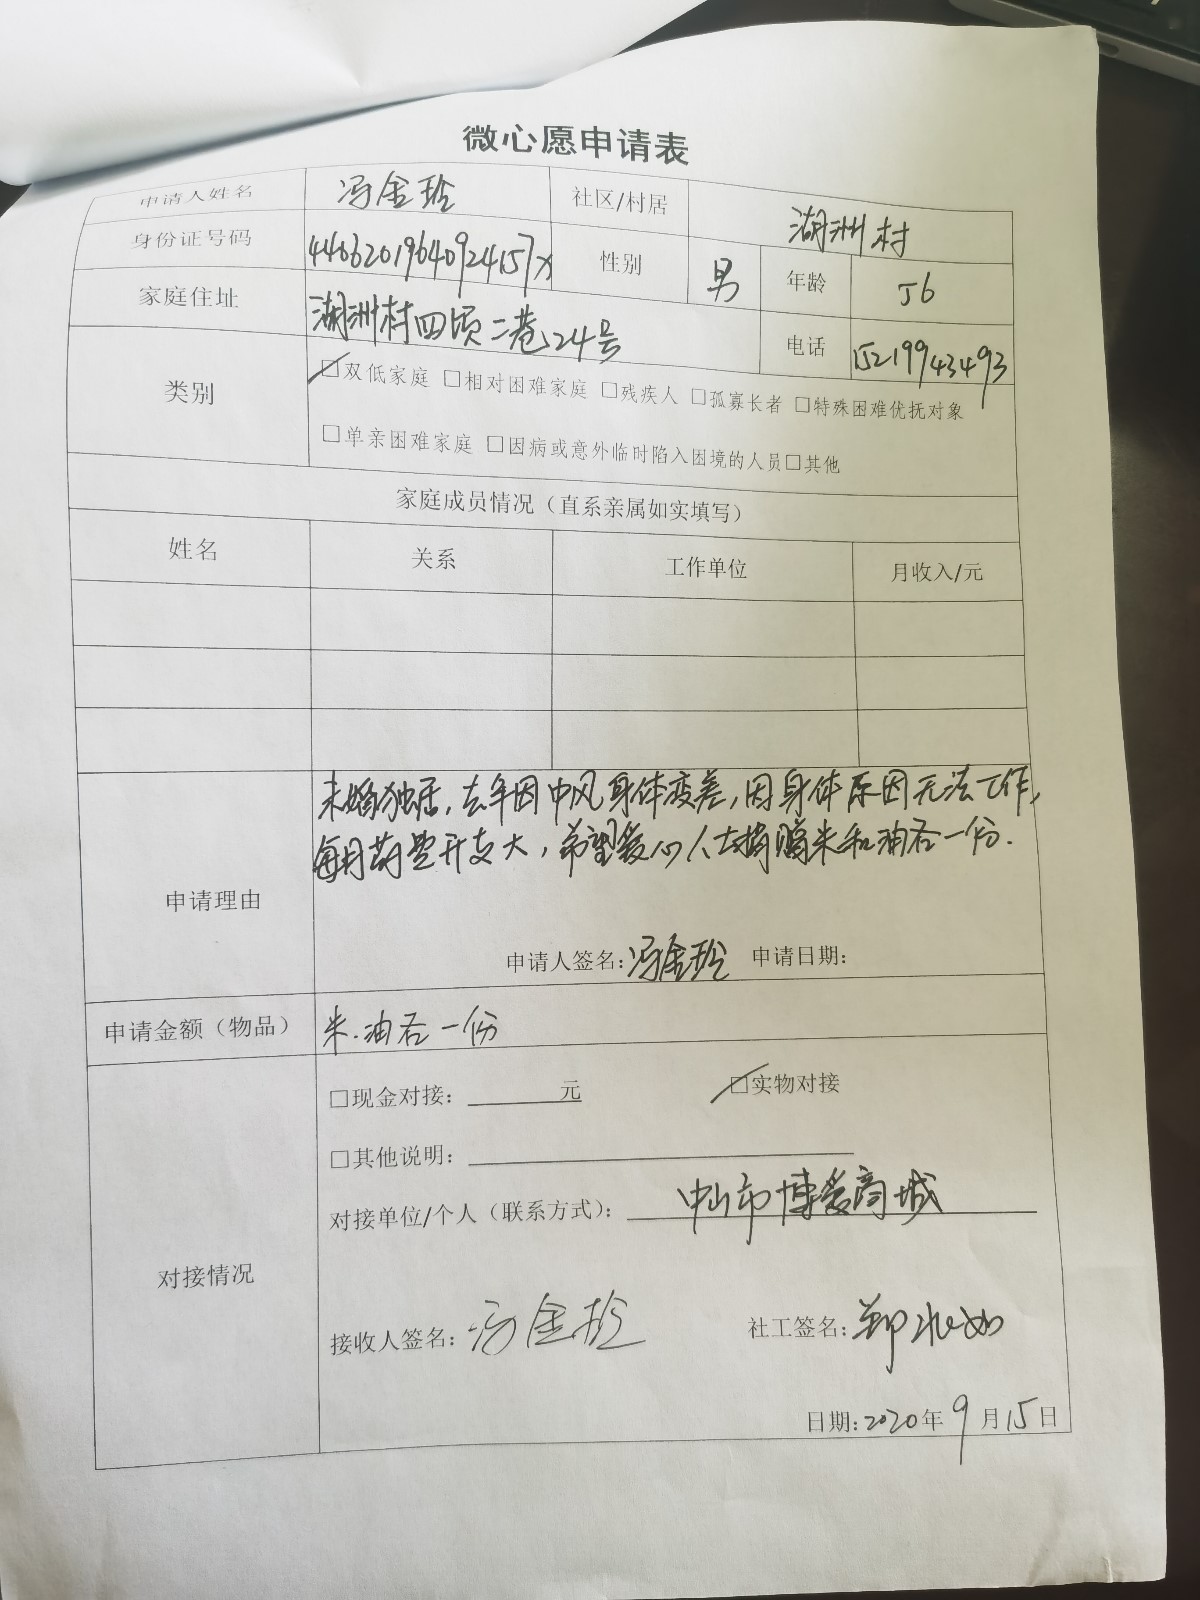 微心愿申请表
申请人姓名 冯金玲 社区/村居 湖洲村
身份证号码 44062019640924157X 性别 男 年龄 56
家庭住址 湖洲村四顷二巷24号 电话 15219943493
类别 □双低家庭 □相对困难家庭 □残疾人 □孤寡长者 □特殊困难优抚对象
□单亲困难家庭 □因病或意外临时陷入困境的人员□其他
家庭成员情况（直系亲属如实填写）
姓名 关系 工作单位 月收入/元
未婚独居，去年因中风身体变差，因身体原因无法工作，
每月药费开支大，希望爱心人士捐赠米和油各一份.
申请理由
申请人签名：冯金玲 申请日期：
申请金额（物品） 米.油各一份
□现金对接： 元 □实物对接
□其他说明：
对接单位/个人（联系方式）： 中山市博爱商城
对接情况
接收人签名：冯金玲 社工签名：郑
日期：2020年9月15日